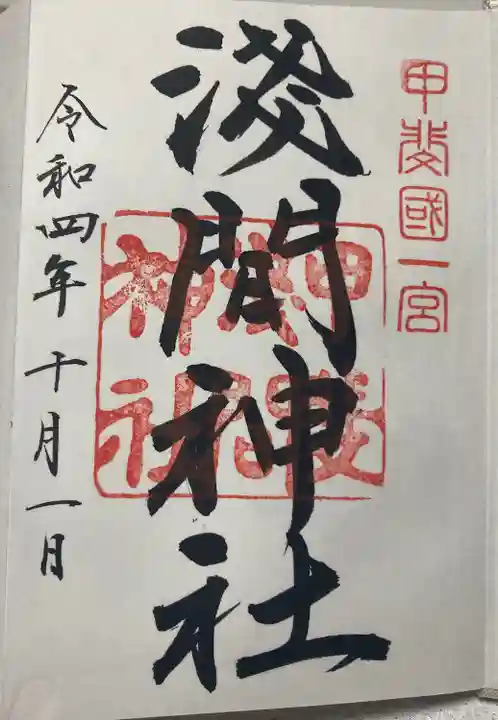 甲斐國一宮
淺間神社
令和四年十月一日